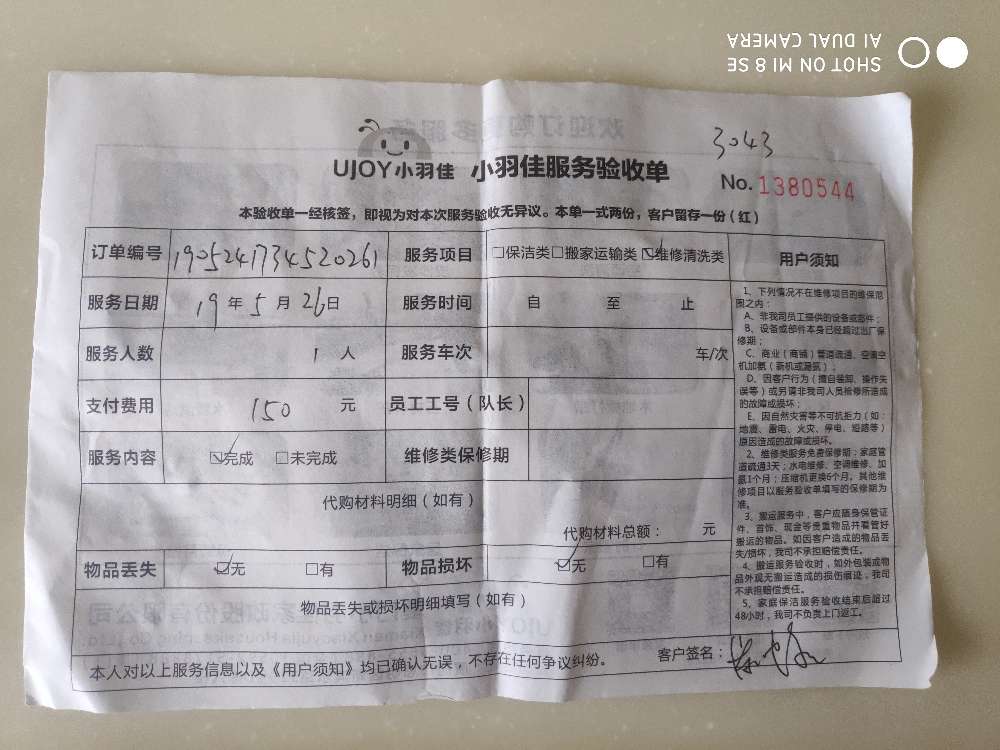 SHOT ON MI 8 SE
AI DUAL CAMERA
3043
UJOY小羽佳 小羽佳服务验收单
No. 1380544
本验收单一经核签，即视为对本次服务验收无异议。本单一式两份，客户留存一份（红）
订单编号 1905241734520261 服务项目 □保洁类□搬家运输类☑维修清洗类 用户须知
服务日期 19年5月26日 服务时间 自 至 止
服务人数 1 人 服务车次 车/次
支付费用 150 元 员工工号（队长）
服务内容 ☑完成 □未完成 维修类保修期
代购材料明细（如有）
代购材料总额： 元
物品丢失 ☑无 □有 物品损坏 ☑无 □有
物品丢失或损坏明细填写（如有）
本人对以上服务信息以及《用户须知》均已确认无误，不存在任何争议纠纷。 客户签名：
1、下列情况不在维修项目的维保范
围之内：
A、非我司员工提供的设备或部件；
B、设备或部件本身已经超过出厂保
修期；
C、商业（商铺）管道疏通、空调空
机加氟（新机或漏氟）；
D、因客户行为（擅自装卸、操作失
误等）或另请非我司人员检修所造成
的故障或损坏；
E、因自然灾害等不可抗拒力（如：
地震、雷电、火灾、停电、短路等）
原因造成的故障或损坏。
2、维修类服务免费保修期：家庭管
道疏通3天；水电维修、空调维修、加
氟1个月；压缩机更换6个月。其他维
修项目以服务验收单填写的保修期为
准。
3、搬运服务中，客户应随身保管证
件、首饰、现金等贵重物品并看管好
搬运的物品。如因客户造成的物品丢
失/损坏，我司不承担赔偿责任。
4、搬运服务验收时，如外包装或物
品外观无搬运造成的损伤痕迹，我司
不承担赔偿责任。
5、家庭保洁服务验收结束后超过
48小时，我司不负责上门返工。